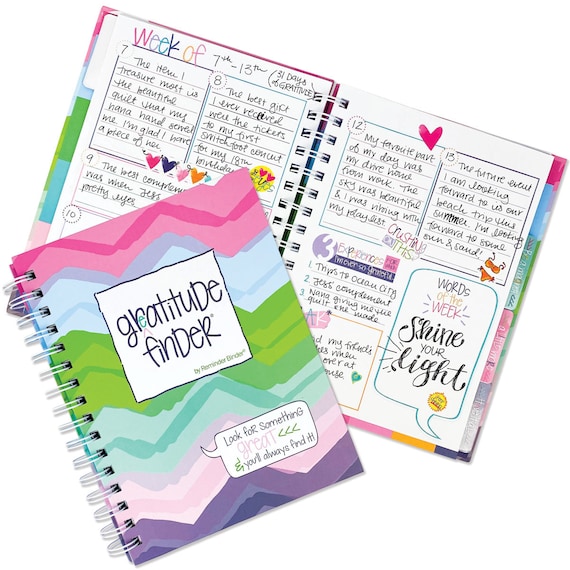 Week of
7th - 13th (31 Days of GRATITUDE)
7 The item I
treasure most is
the beautiful
quilt that my
nana hand sewed
me. I'm glad I have
a piece of her.
8 The best gift
I ever received
were the tickets
to my first
Switchfoot concert
for my 18th
birthday
9 The best complement
was when Jess
pretty eyes
10
12 My favorite part
of my day was
my drive home
from work. The
sky was beautiful
& I was vibing with
my playlist
13 The future event
I am looking
forward to is our
beach trip this
summer. I'm looking
forward to some
& sand!
Crushing
THIS
3 Experiences
I'm ever so grateful
1. Trips to Ocean City
2. Jess' complement
3. Nana giving me the
quilt she made
my friends
when
over at
house
WORDS
of the
WEEK
Shine
YOUR
light
gratitude
finder®
by Reminder Binder®
Look for something
great <<<
& you'll always find it!